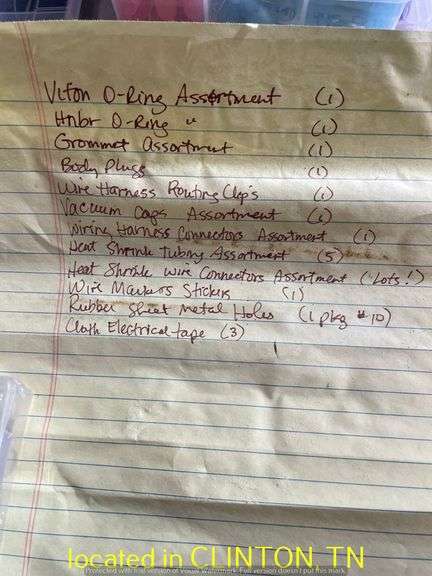 Viton O-Ring Assortment (1)
Hnbr O-Ring " (1)
Grommet Assortment (1)
Body Plugs (1)
Wire Harness Routing Clip's (1)
Vacuum Caps Assortment (1)
Wiring Harness Connectors Assortment (1)
Heat Shrink Tubing Assortment (5)
Heat Shrink Wire Connectors Assortment (Lots!)
Wire Markers Stickers (1)
Rubber Sheet Metal Holes (1 pkg # 10)
Cloth Electrical tape (3)
located in CLINTON TN
Protected with trial version of Visual Watermark. Full version doesn't put this mark.